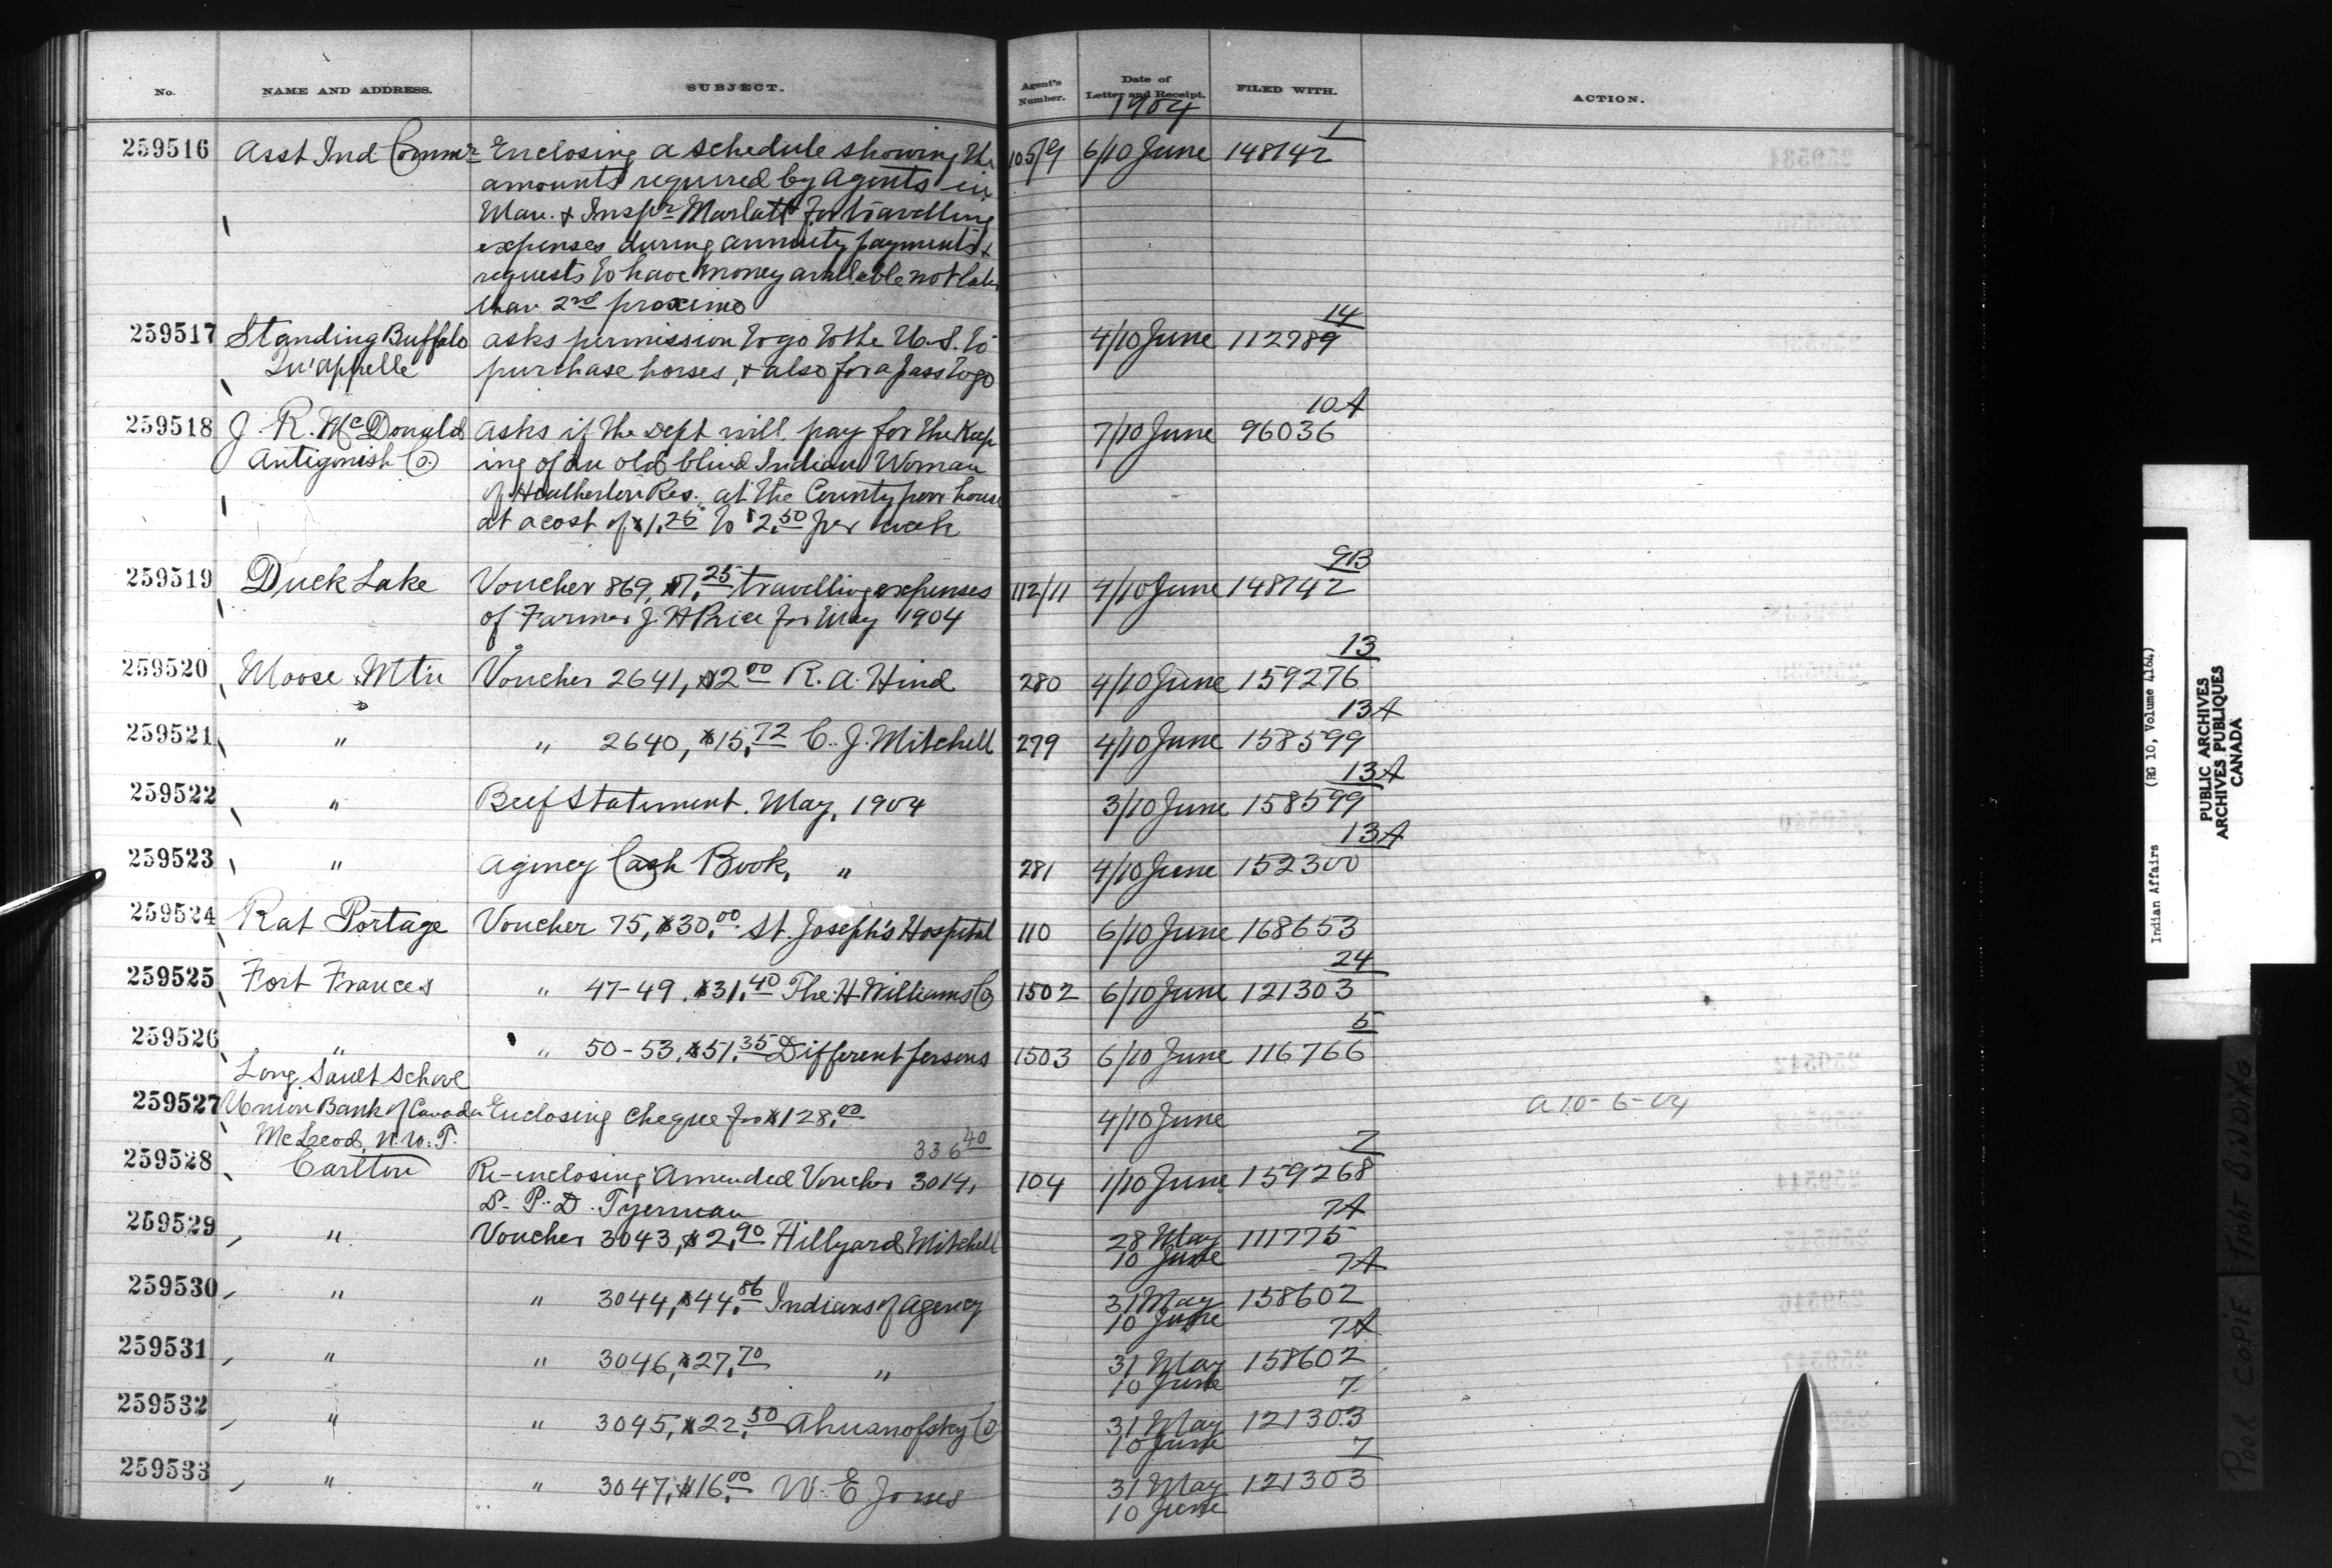 No. NAME AND ADDRESS. SUBJECT. Agent's Number. Date of Letter and Receipt. FILED WITH. ACTION.
1904
1
259516 Asst Ind Commr Enclosing a schedule showing the 105/9 6/10 June 148142
amounts required by Agents in
Man. & Inspr Marlatt for travelling
expenses during annuity payments &
requests to have money available not later
than 2nd proximo
14
259517 Standing Buffalo asks permission to go to the U.S. to 4/10 June 112989
Qu'appelle purchase horses, & also for a pass to go
10A
259518 J. R. McDonald asks if the Dept will pay for the Keep 7/10 June 96036
Antigonish Co. ing of an old blind Indian Woman
of Heatherton Res. at the County poor house
at a cost of $1.25 to $2.50 per week
9B
259519 Duck Lake Voucher 869, $7.25 travelling expenses 112/11 4/10 June 148142
of Farmer J. H Price for May 1904
13
259520 Moose Mtn Voucher 2641, $2 00 R. A. Hind 280 4/10 June 159276
13A
259521 " " 2640, $15.72 C. J. Mitchell 279 4/10 June 158599
13A
259522 " Beef Statement. May, 1904 3/10 June 158599
13A
259523 " Agency Cash Book, " 281 4/10 June 152300
259524 Rat Portage Voucher 75, $30.00 St. Joseph's Hospital 110 6/10 June 168653
24
259525 Fort Frances " 47-49. $31.40 The H Williams Co 1502 6/10 June 121303
5
259526 " " 50-53, $51.35 Different persons 1503 6/10 June 116766
Long Sault School
259527 Union Bank of Canada Enclosing cheque for $128.00 4/10 June a 10-6-04
McLeod, N.W.T.
336 40
7
259528 Carlton Re-enclosing Amended Voucher 3014, 104 1/10 June 159268
D. P. D. Tyerman
7A
259529 " Voucher 3043, $2.90 Hillyard Mitchell 28 May 111775
10 June
7A
259530 " " 3044, $44.86 Indians of Agency 31 May 158602
10 June
7A
259531 " " 3046, $27.70 " 31 May 158602
10 June
7
259532 " " 3045, $22.50 31 May 121303
10 June
7
259533 " " 3047, $16.00 W. E Jones 31 May 121303
10 June
Indian Affairs (RG 10, Volume 4164)
PUBLIC ARCHIVES
ARCHIVES PUBLIQUES
CANADA
POOR COPIE TIGHT BINDING